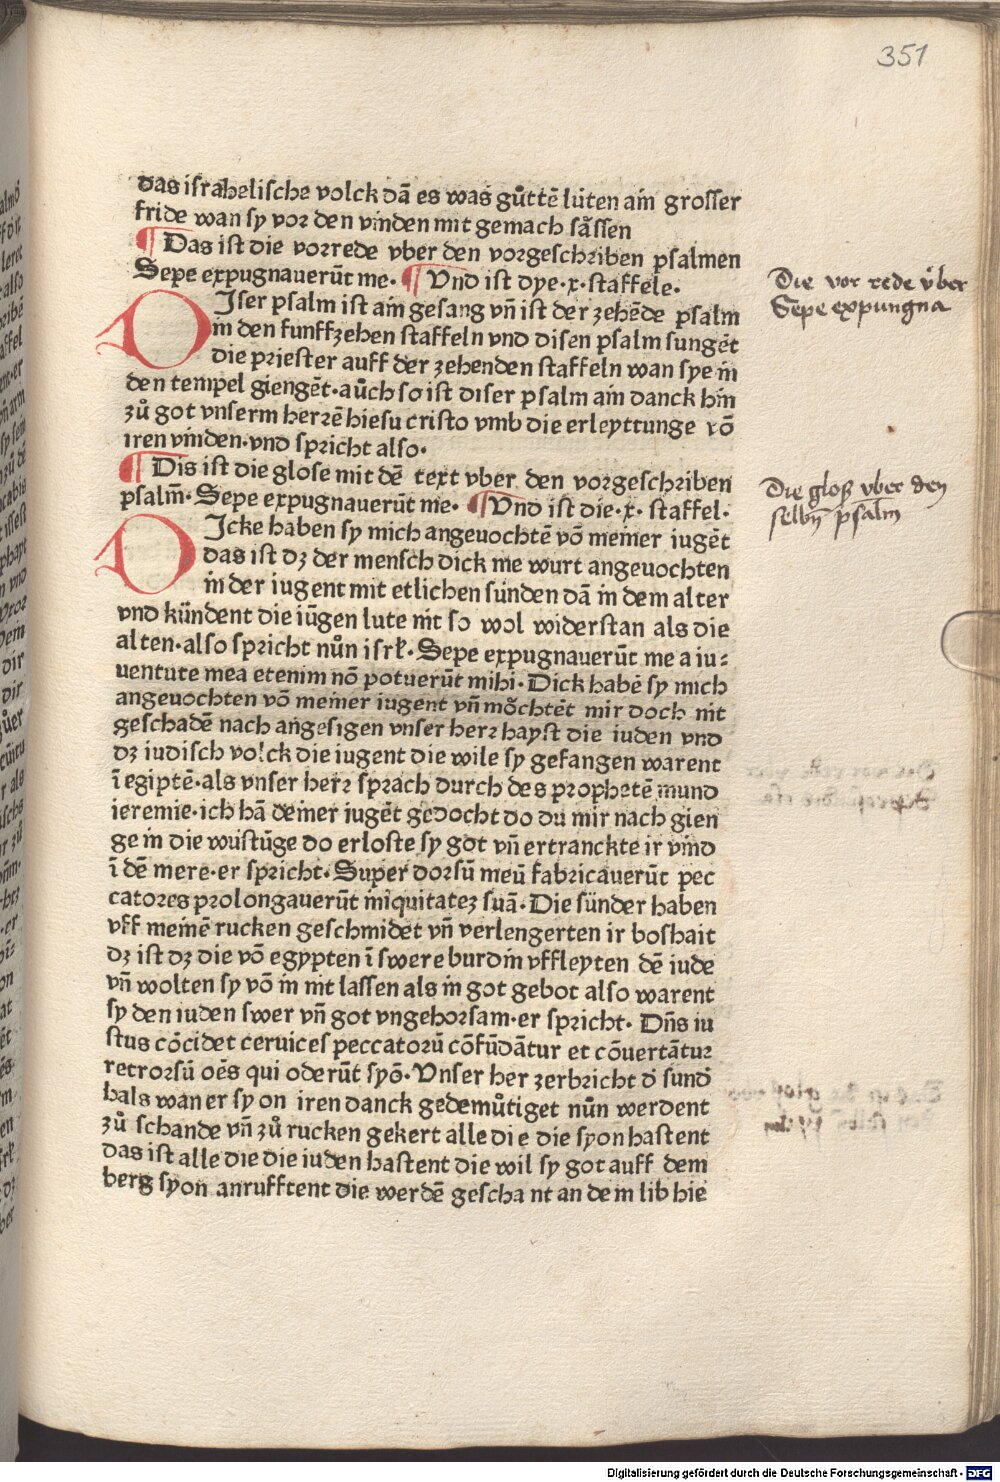 351
das israhelische volck dā es was gůttē lüten ain grosser
fride wan sy vor den vinden mit gemach sässen
¶ Das ist die vorrede vber den vorgeschriben psalmen
Sepe expugnauerūt me. ¶ Vnd ist dye .x. staffele.
DIser psalm ist ain gesang vn̄ ist der zehēde psalm
in den funffzehen staffeln vnd disen psalm sungēt
die priester auff der zehenden staffeln wan sye in
den tempel giengēt. aůch so ist diser psalm ain danck hin
zů got vnserm herrē hiesu cristo vmb die erleyttunge vō
iren vinden. vnd spricht also.
¶ Dis ist die glose mit dē text vber den vorgeschriben
psalm̄. Sepe expugnauerūt me. ¶ Vnd ist die .x. staffel.
DIcke haben sy mich angeuochtē vō meiner iugēt
das ist dz der mensch dick me wurt angeuochten
in der iugent mit etlichen sünden dā in dem alter
vnd kündent die iügen lute nit so wol widerstan als die
alten. also spricht nůn isrł. Sepe expugnauerūt me a iu⸗
uentute mea etenim nō potuerūt mihi. Dick habē sy mich
angeuochten vō meiner iugent vn̄ möchtēt mir doch nit
geschadē nach angesigen vnser herz hayst die iuden vnd
dz iudisch volck die iugent die wile sy gefangen warent
ī egiptē. als vnser herz sprach durch des prophetē mund
ieremie. ich hā deiner iugēt gedocht do du mir nach gien
ge in die wustūge do erloste sy got vn̄ ertranckte ir vind
ī dē mere. er spricht. Super dorsū meū fabricauerūt pec
catores prolongauerūt iniquitatez suā. Die sünder haben
vff meinē rucken geschmidet vn̄ verlengerten ir boshait
dz ist dz die vō egypten ī swere burdin vffleyten dē iude
vn̄ wolten sy vō in nit lassen als in got gebot also warent
sy den iuden swer vn̄ got vngehorsam. er spricht. Dn̄s iu
stus cōcidet ceruices peccatorū cōfūdātur et cōuertātur
retrorsū oēs qui oderūt syō. Vnser her zerbricht d̄ sund̄
hals wan er sy on iren danck gedemůtiget nůn werdent
zů schande vn̄ zů rucken gekert alle die die syon hastent
das ist alle die die iuden hastent die wil sy got auff dem
berg syon anrufftent die werdē geschant an dem lib hie
Die vor rede vber
Sepe expungna
Die gloß vber den
selbn̄ psalm
Digitalisierung gefördert durch die Deutsche Forschungsgemeinschaft - DFG